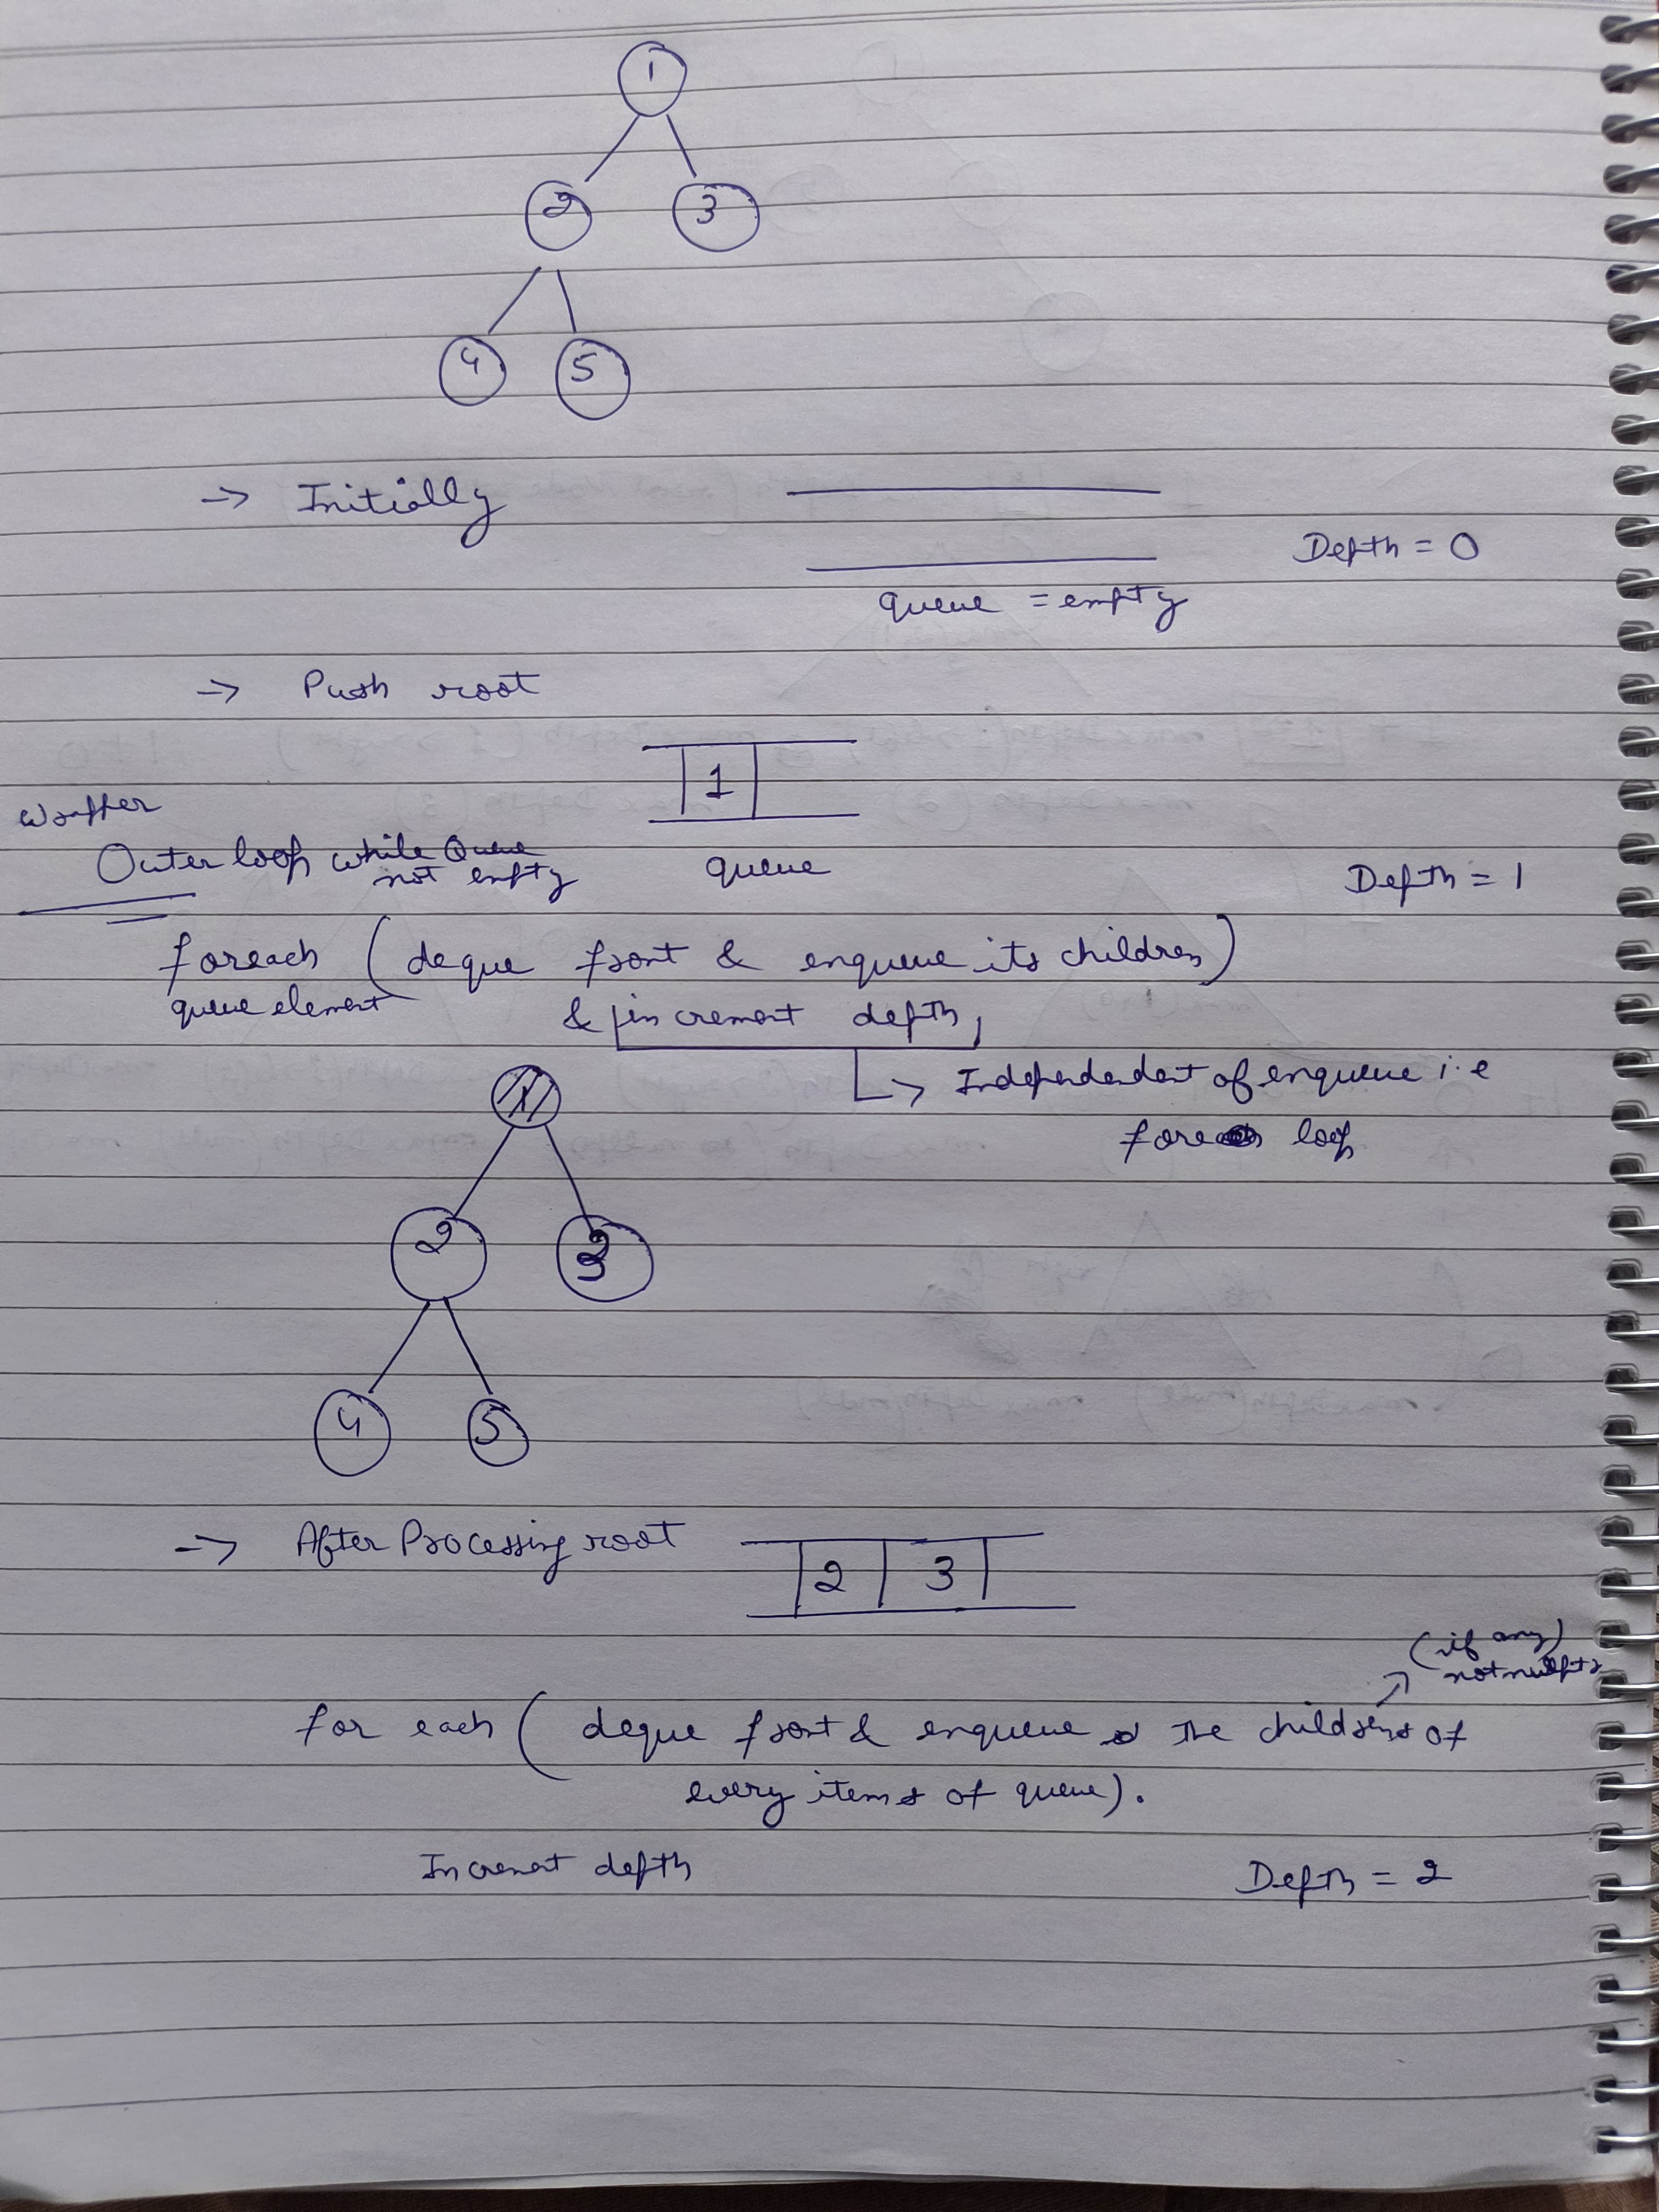 1
2 3
4 5
-> Initially
Depth = 0
queue = empty
-> Push root
1
queue
Wrapper
Outer loop while Queue
not empty
Depth = 1
foreach (deque front & enqueue its children)
queue element
& increment depth,
-> Independendent of enqueue i.e
foreach loop
1
2 3
4 5
-> After Processing root
2 3
(if any)
not nullptr
for each ( deque front & enqueue the childrens of
every items of queue).
Increment depth
Depth = 2